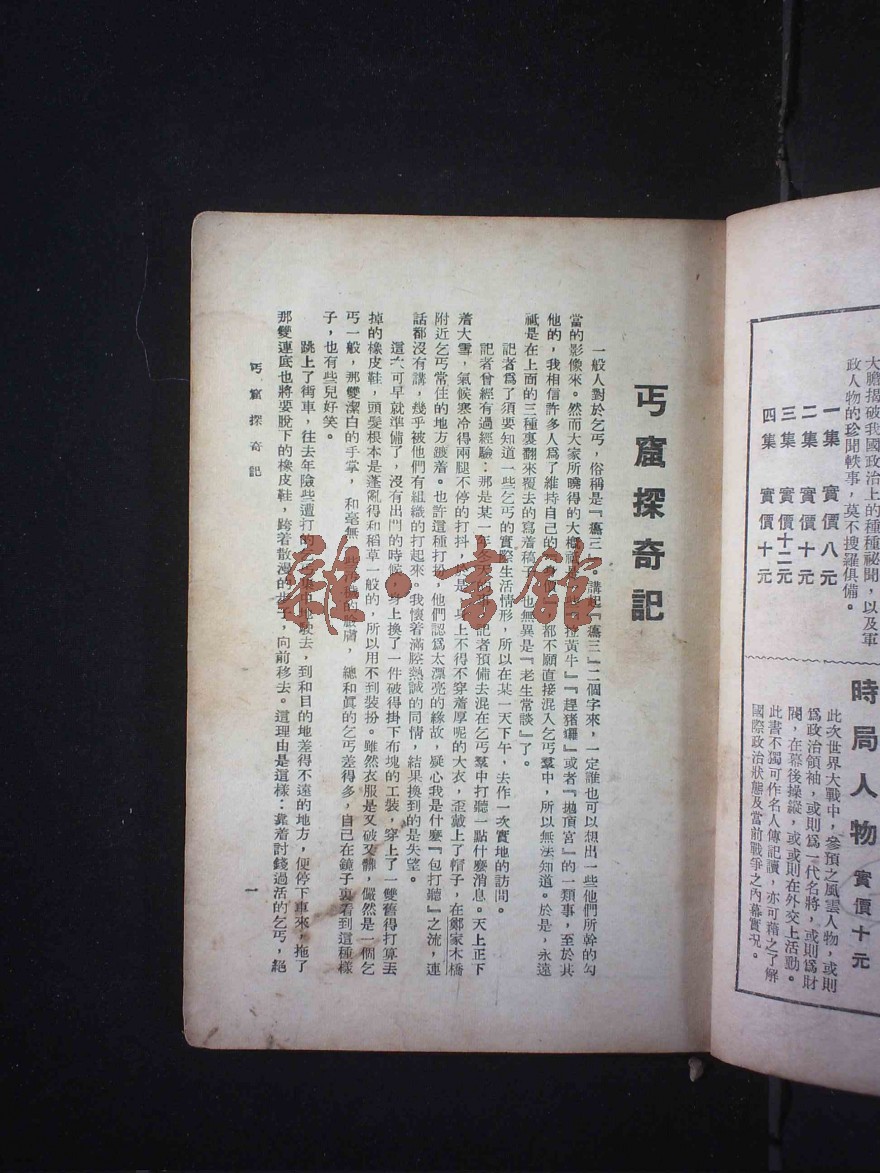 大膽揭破我國政治上的種種祕聞，以及軍
政人物的珍聞軼事，莫不搜羅俱備。
一集　實價八元
二集　實價十元
三集　實價十二元
四集　實價十元
時局人物　實價十元
此次世界大戰中，參預之風雲人物，或則
爲政治領袖，或則爲一代名將，或則爲財
閥，在幕後操縱，或或則在外交上活動。
此書不獨可作名人傳記讀，亦可藉之了解
國際政治狀態及當前戰爭之內幕實況。
丐窟探奇記
一般人對於乞丐，俗稱是『癟三』。講起『癟三』二個字來，一定誰也可以想出一些他們所幹的勾
當的影像來。然而大家所曉得的大槪祇『拉黃牛』『趕猪玀』或者『拋頂宮』的一類事，至於其
他的，我相信許多人爲了維持自己的都不願直接混入乞丐羣中，所以無法知道。於是，永遠
祇是在上面的三種裏翻來覆去的寫着稿子也無異是『老生常談』了。
記者爲了須要知道一些乞丐的實際生活情形，所以在某一天下午，去作一次實地的訪問。
記者曾經有過經驗：那是某一年冬天記者預備去混在乞丐羣中打聽一點什麼消息。天上正下
着大雪，氣候寒冷得兩腿不停的打抖，於是身上不得不穿着厚呢的大衣，歪戴上了帽子，在鄭家木橋
附近乞丐常住的地方踱着。也許這種打扮他們認爲太漂亮的緣故，疑心我是什麼『包打聽』之流，連
話都沒有講，幾乎被他們有組織的打起來。我懷着滿腔熱誠的同情，結果換到的是失望。
這次可早就準備了，沒有出門的時候，身上換了一件破得掛下布塊的工裝，穿上了一雙舊得打算丟
掉的橡皮鞋，頭髮根本是蓬亂得和稻草一般的，所以用不到裝扮。雖然衣服是又破又髒，儼然是一個乞
丐一般，那雙潔白的手掌，和毫無的嚴膚，總和眞的乞丐差得多，自己在鏡子裏看到這種樣
子，也有些兒好笑。
跳上了街車，往去年險些遭打的集中地駛去，到和目的地差得不遠的地方，便停下車來，拖了
那雙連底也將要脫下的橡皮鞋，跨着散漫的步子，向前移去。這理由是這樣：靠着討錢過活的乞丐，絕
丐窟探奇記
一
雜·書館